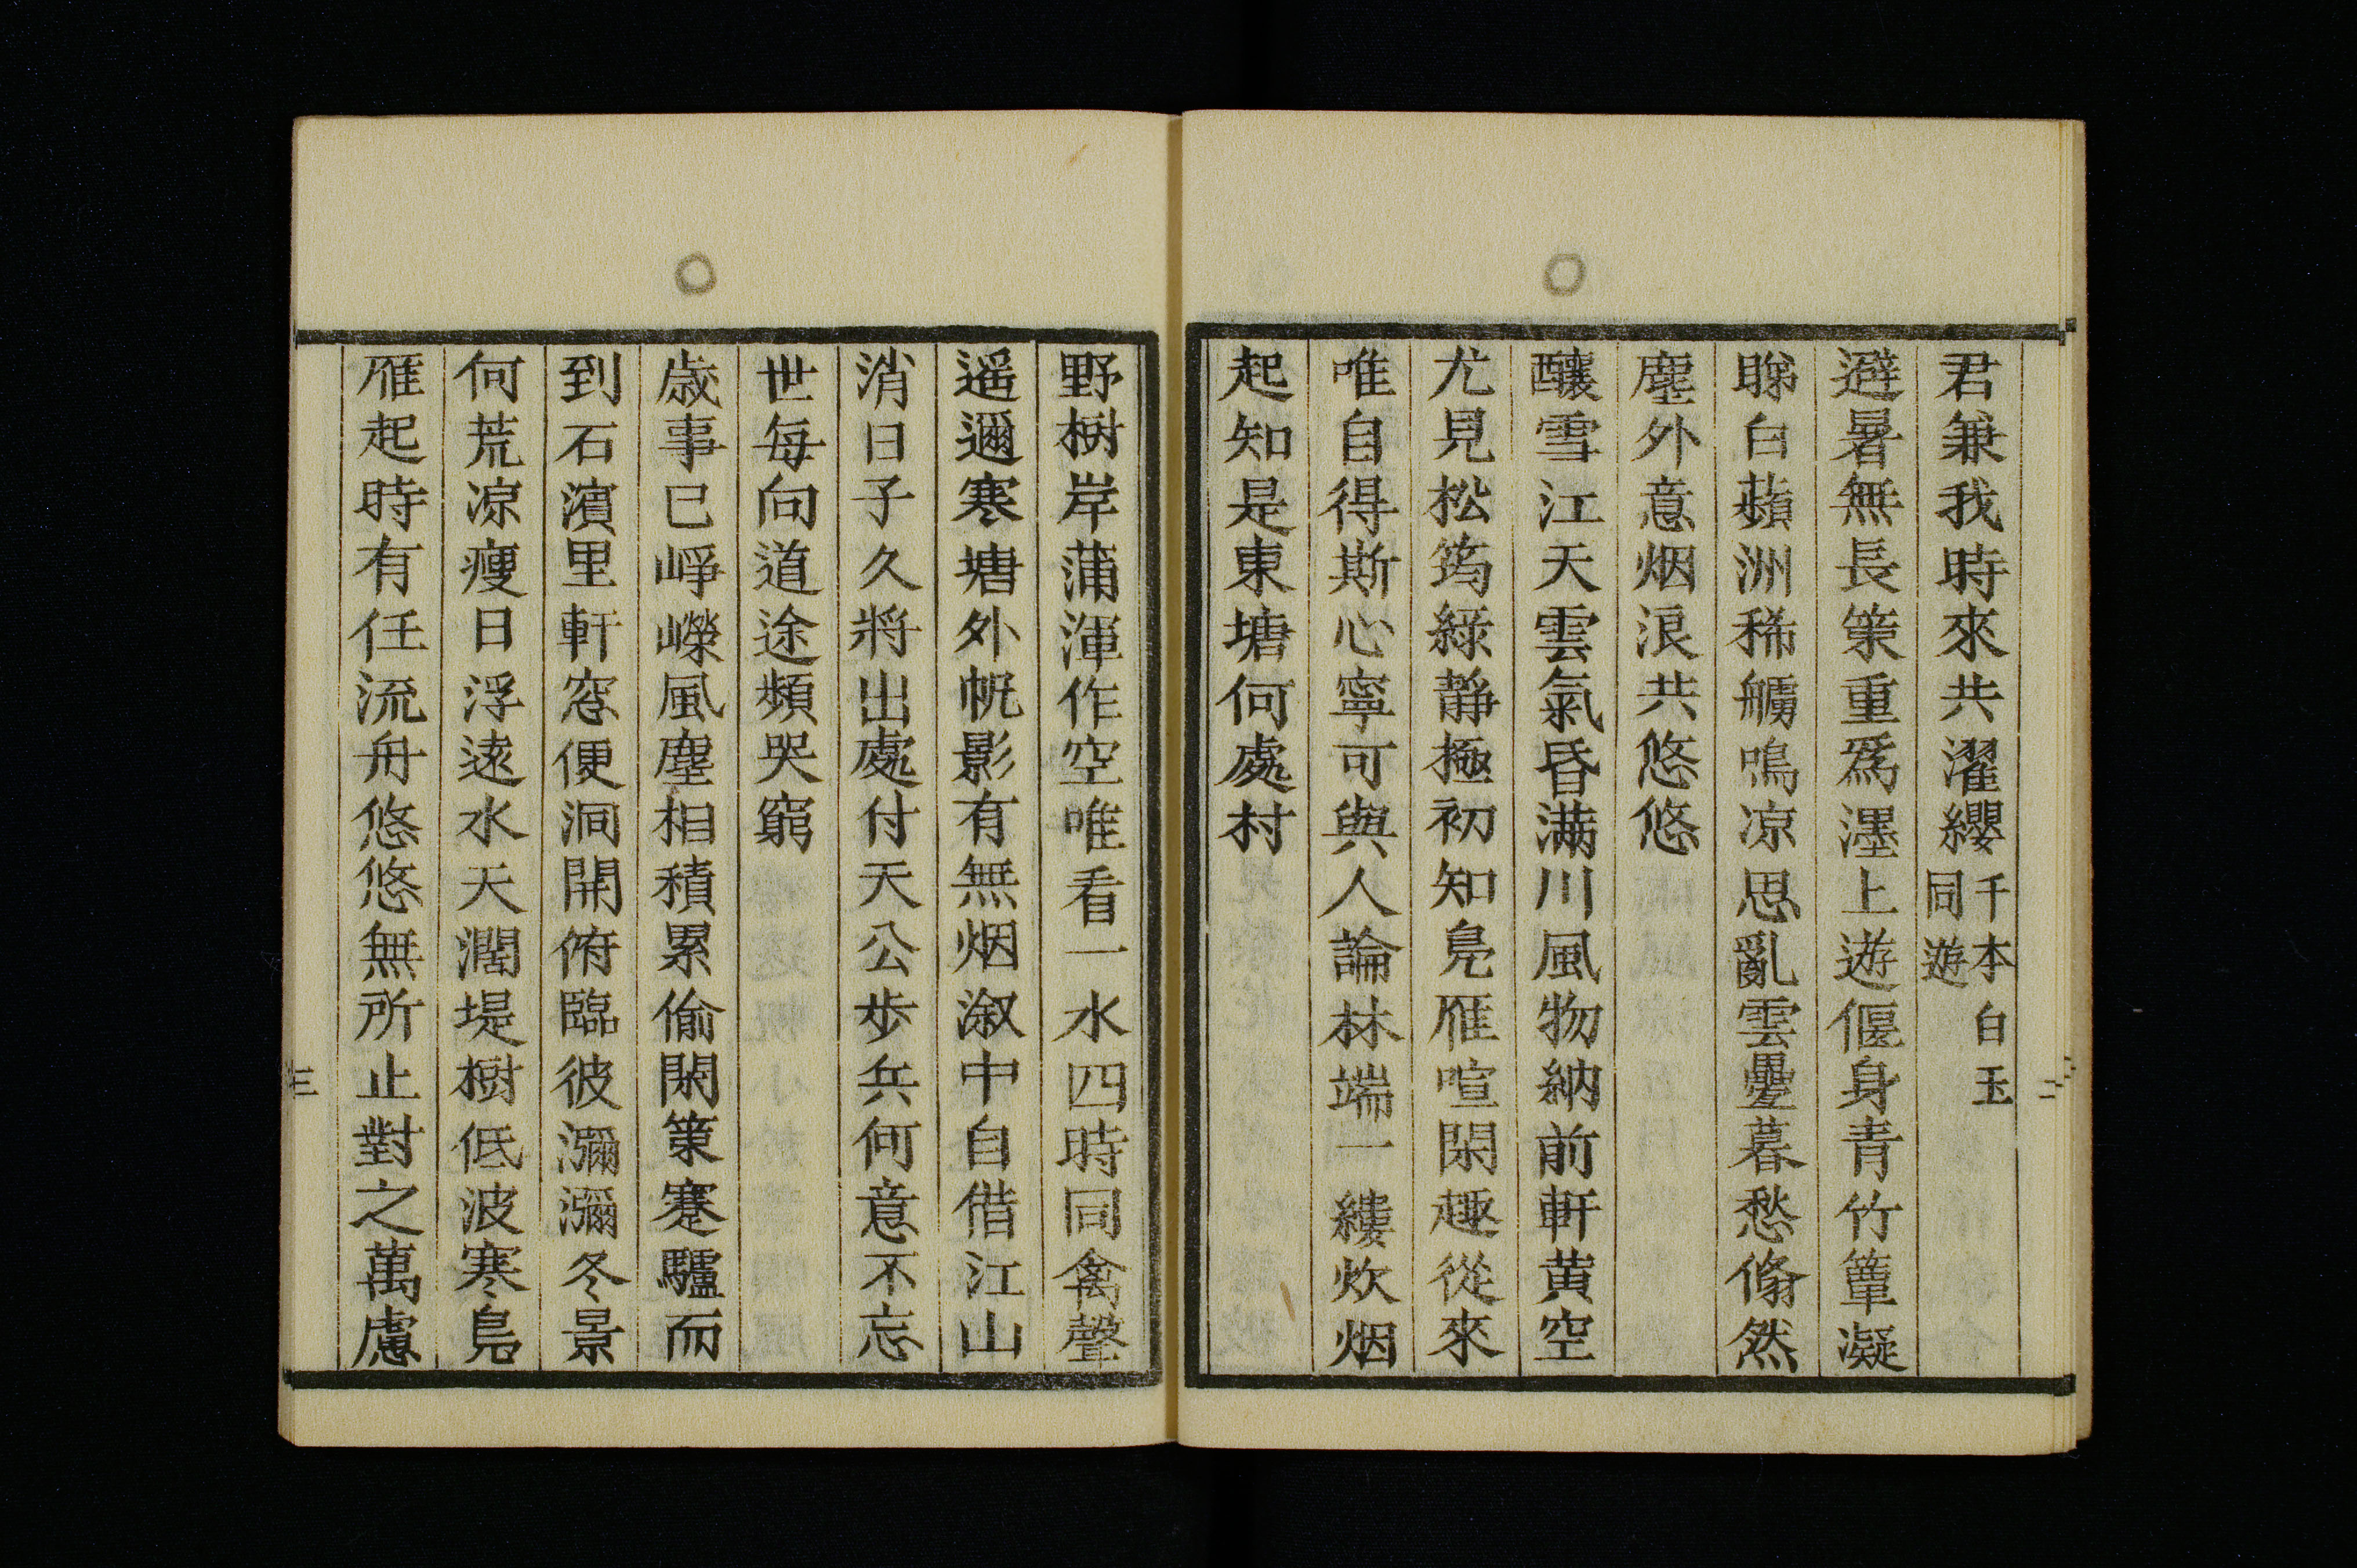 君兼我時來共濯纓千本白玉
同遊
避暑無長策重爲溼上遊偃身青竹簟凝
睇白蘋洲稀艣鳴凉思亂雲疊暮愁翛然
塵外意烟浪共悠悠
釀雪江天雲氣昏滿川風物納前軒黄空
尤見松筠綠静極初知鳧雁喧閑趣從來
唯自得斯心寧可與人論林端一縷炊烟
起知是東塘何處村
野樹岸蒲渾作空唯看一水四時同禽聲
遥邇寒塘外帆影有無烟溆中自借江山
消日子久將出處付天公步兵何意不忘
世每向道途頻哭窮
歳事已崢嶸風塵相積累偷閑策蹇驢而
到石濱里軒窓便洞開俯臨彼瀰瀰冬景
何荒凉瘦日浮遠水天濶堤樹低波寒鳧
雁起時有任流舟悠悠無所止對之萬慮
二
三